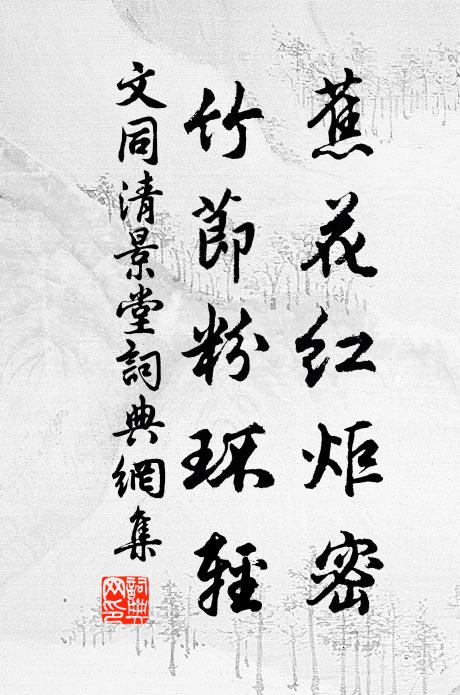 蕉花紅炬密
竹節粉环輕
文同清景堂詞典網集
詞典
网印